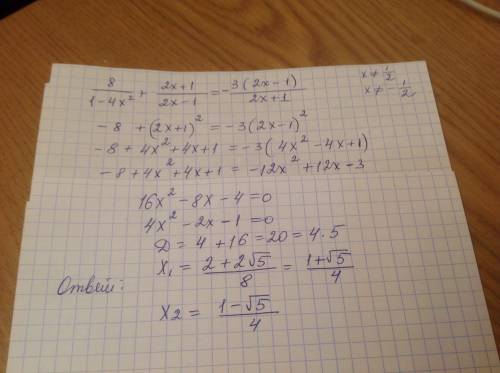 8/(1-4x²) + (2x+1)/(2x-1) = -3(2x-1)/(2x+1) x≠1/2
x≠-1/2
-8 + (2x+1)² = -3(2x-1)²
-8 + 4x² + 4x + 1 = -3(4x² - 4x + 1)
-8 + 4x² + 4x + 1 = -12x² + 12x - 3
16x² - 8x - 4 = 0
4x² - 2x - 1 = 0
D = 4 + 16 = 20 = 4·5
Ответ: x₁ = (2+2√5)/8 = (1+√5)/4
x2 = (1-√5)/4